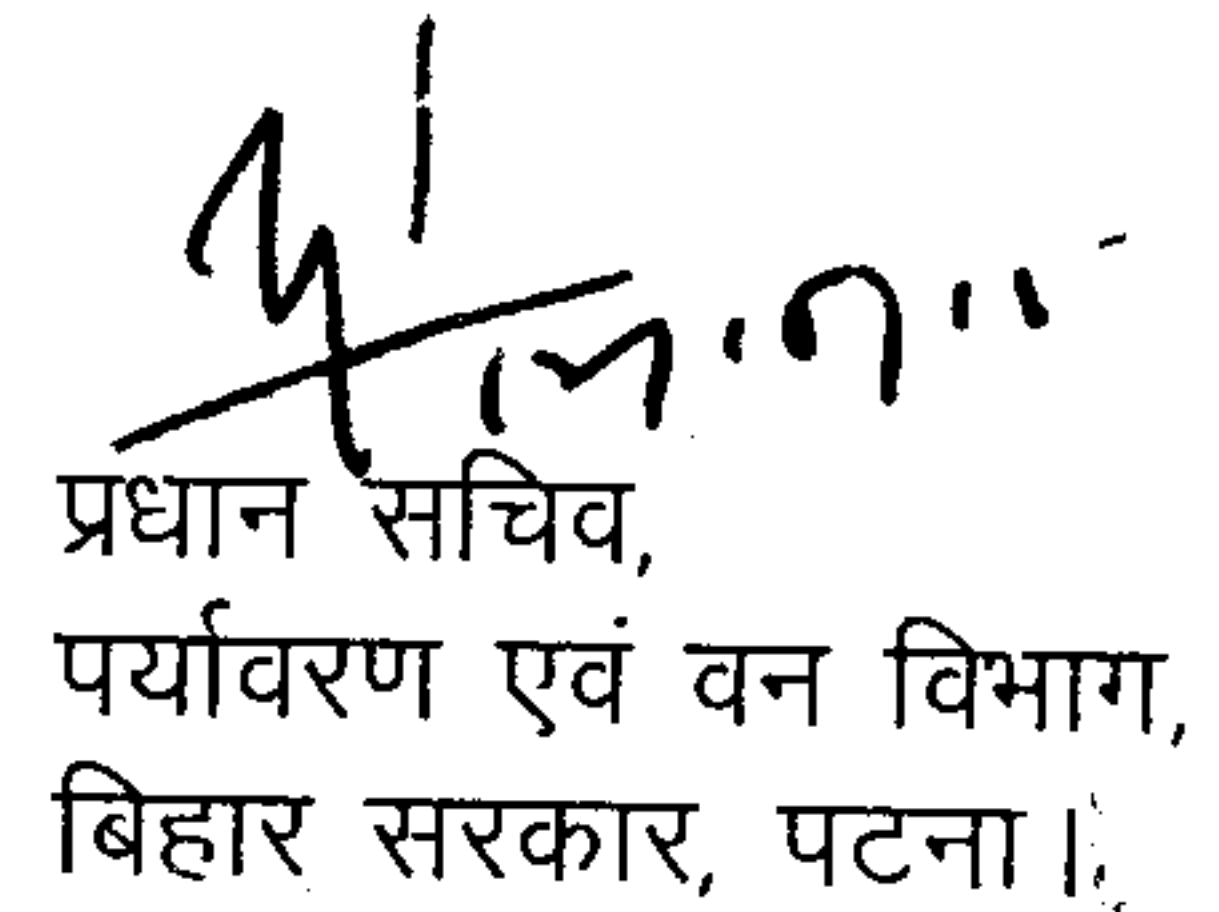 प्रधान सचिव,
पर्यावरण एवं वन विभाग,
बिहार सरकार, पटना।